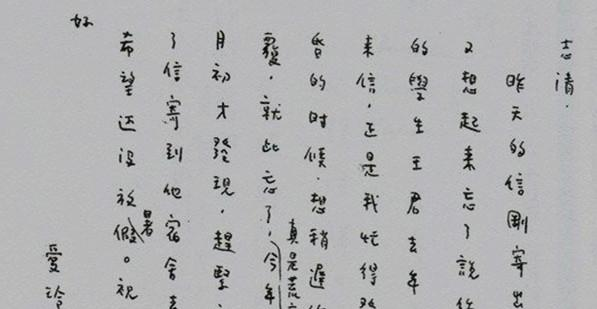 志清，
昨天的信剛寄出
又想起來忘了說
的學生王君去年
來信，正是我忙得
的时候，想稍遲
覆，就此忘了，今年
真是荒
月初才發現，趕緊
了信寄到他宿舍去
希望还沒放暑假。祝
好
愛玲